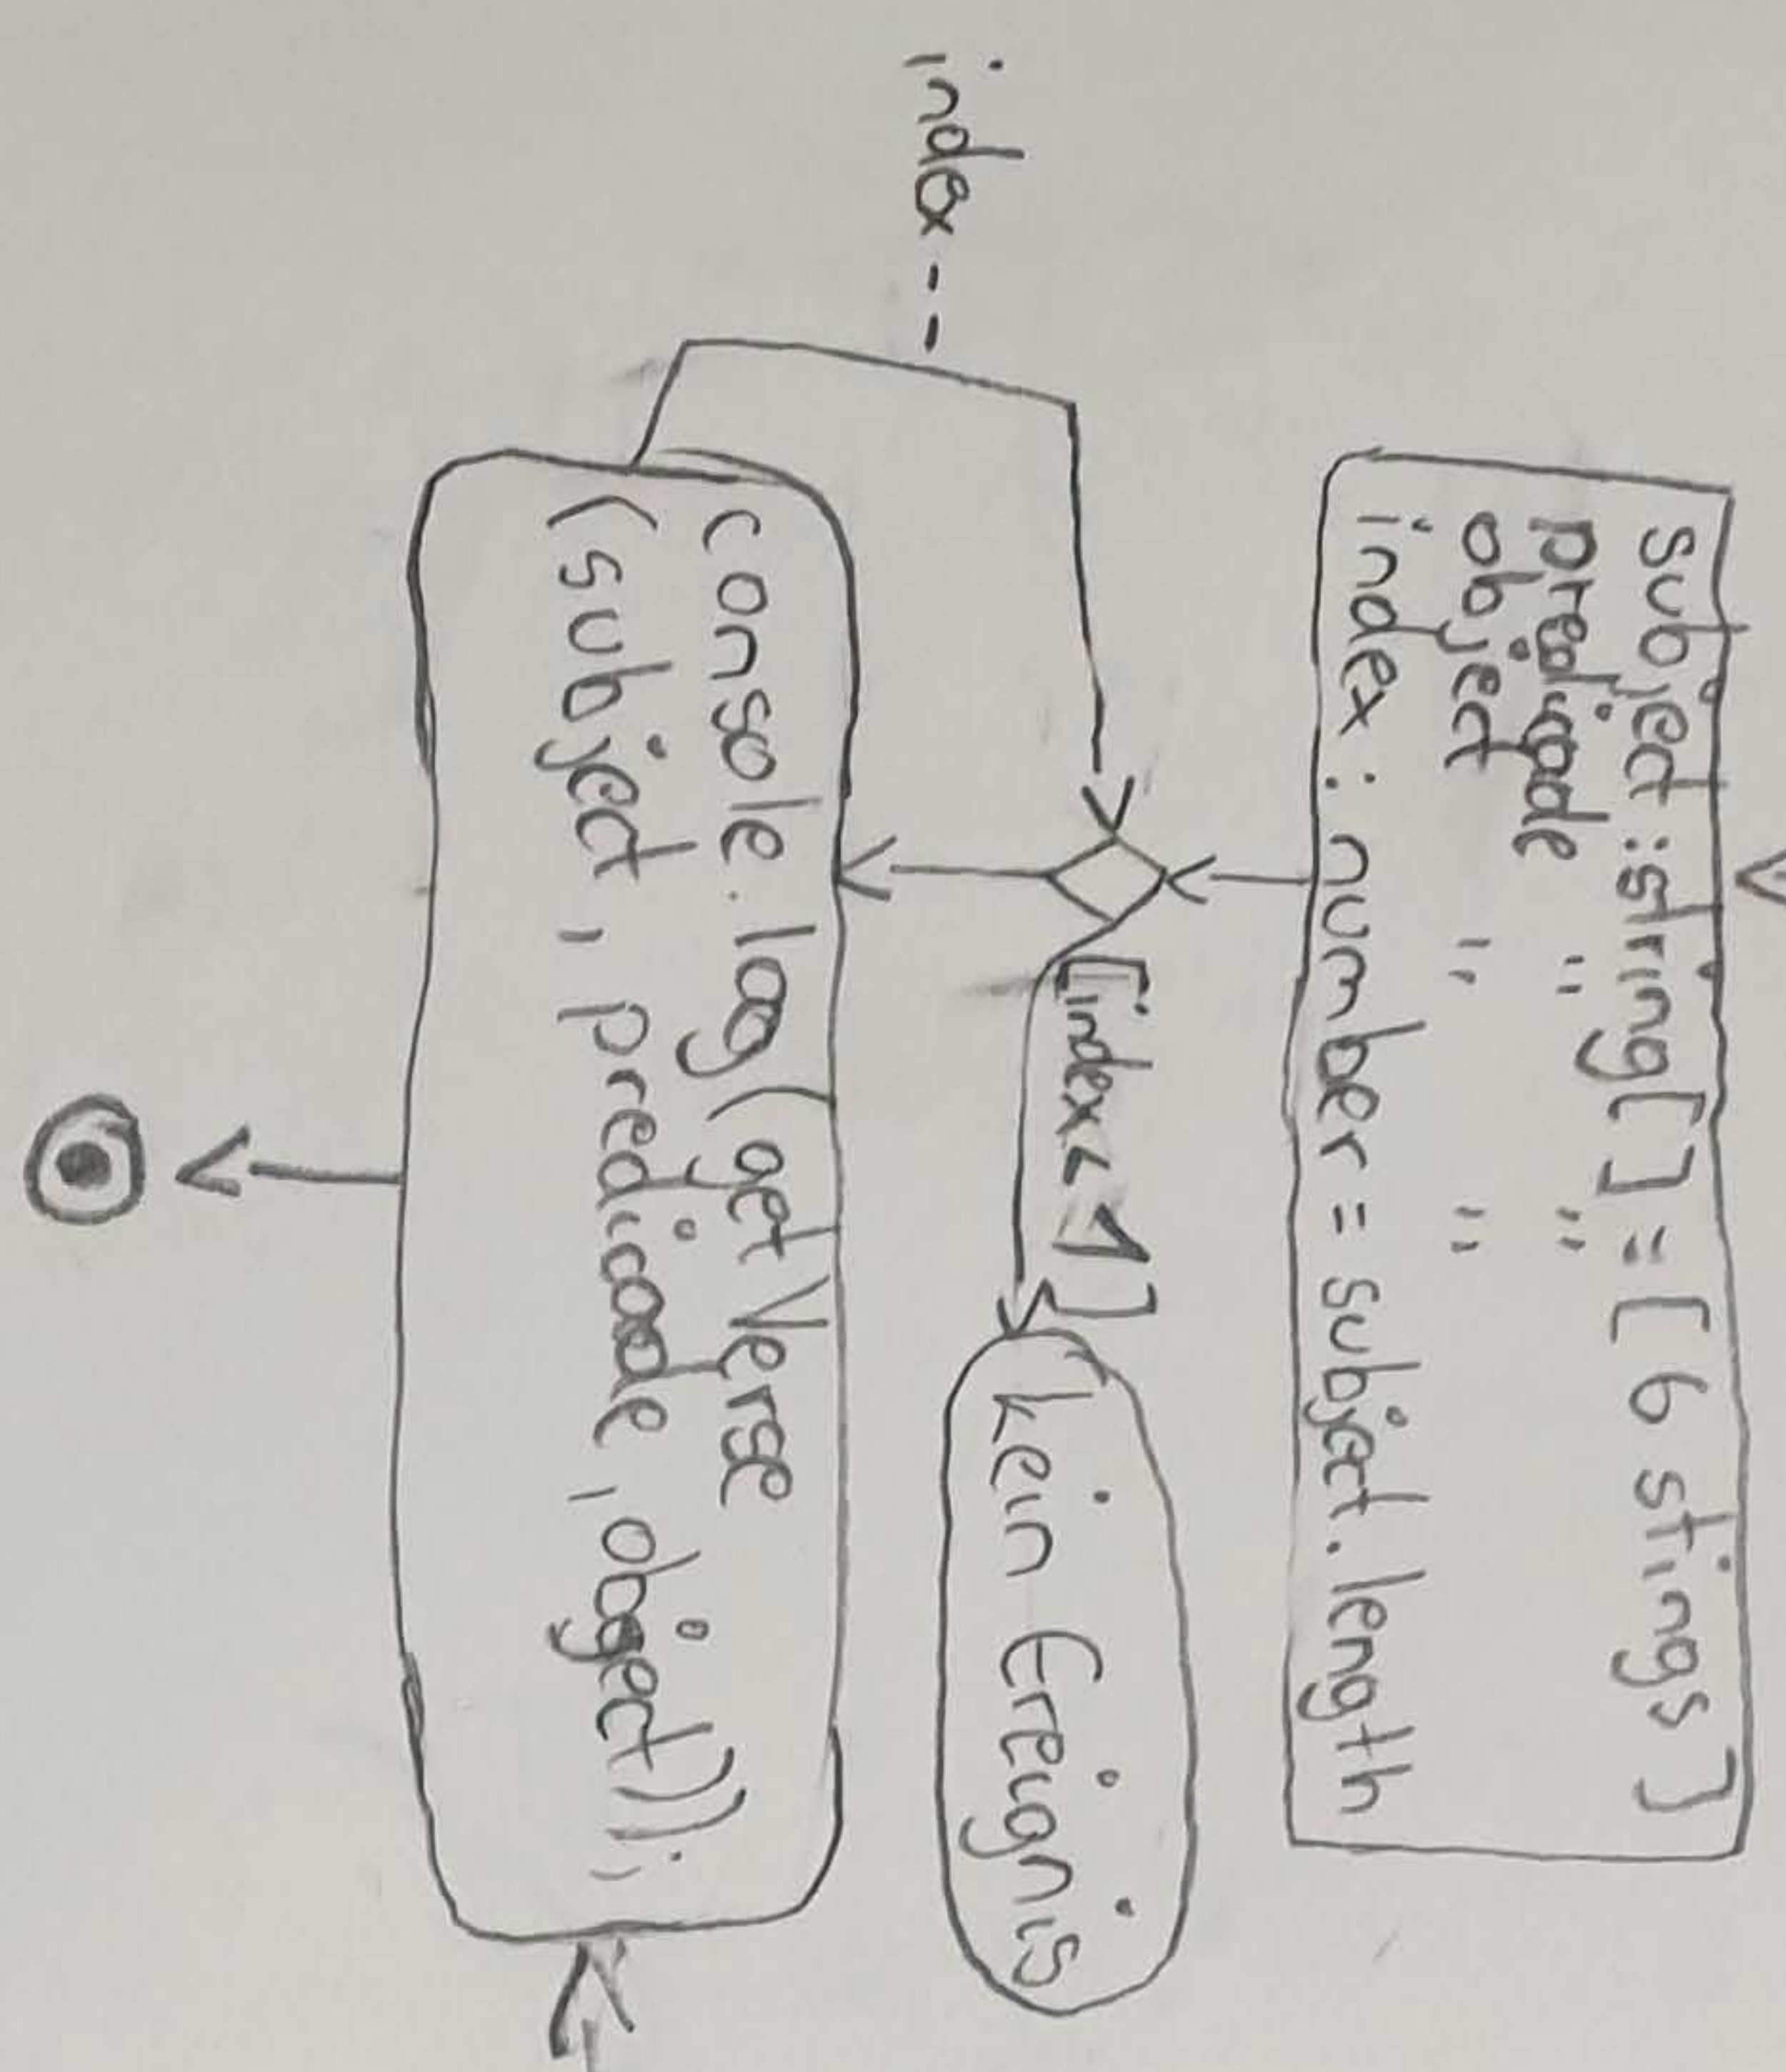 subject:string[] = [6 stings]
predicade " "
object " "
index : number = subject.length
[index < 1]
kein Ereignis
index --
console.log(getVerse
(subject, predicade, object));